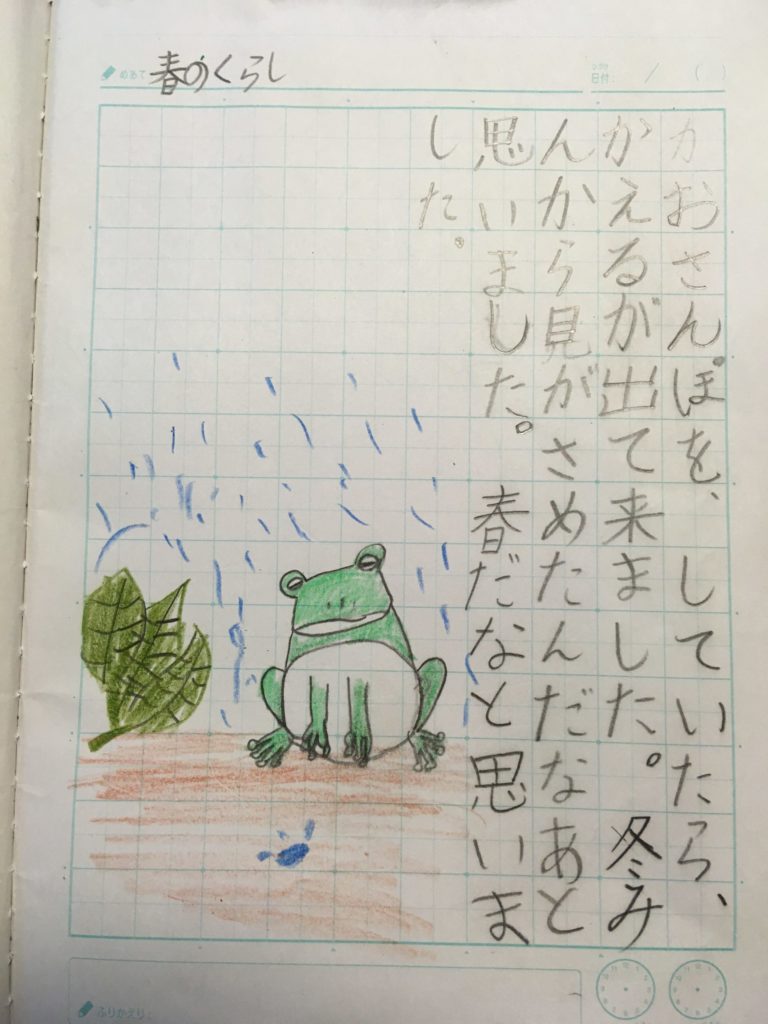 めあて 春のくらし
日付: / ( )
カおさんぽを、 していたら、
かえるが出て来ました。 冬み
んから見がさめたんだなあと
思いました。 春だなと思いま
した。
ふりかえり: